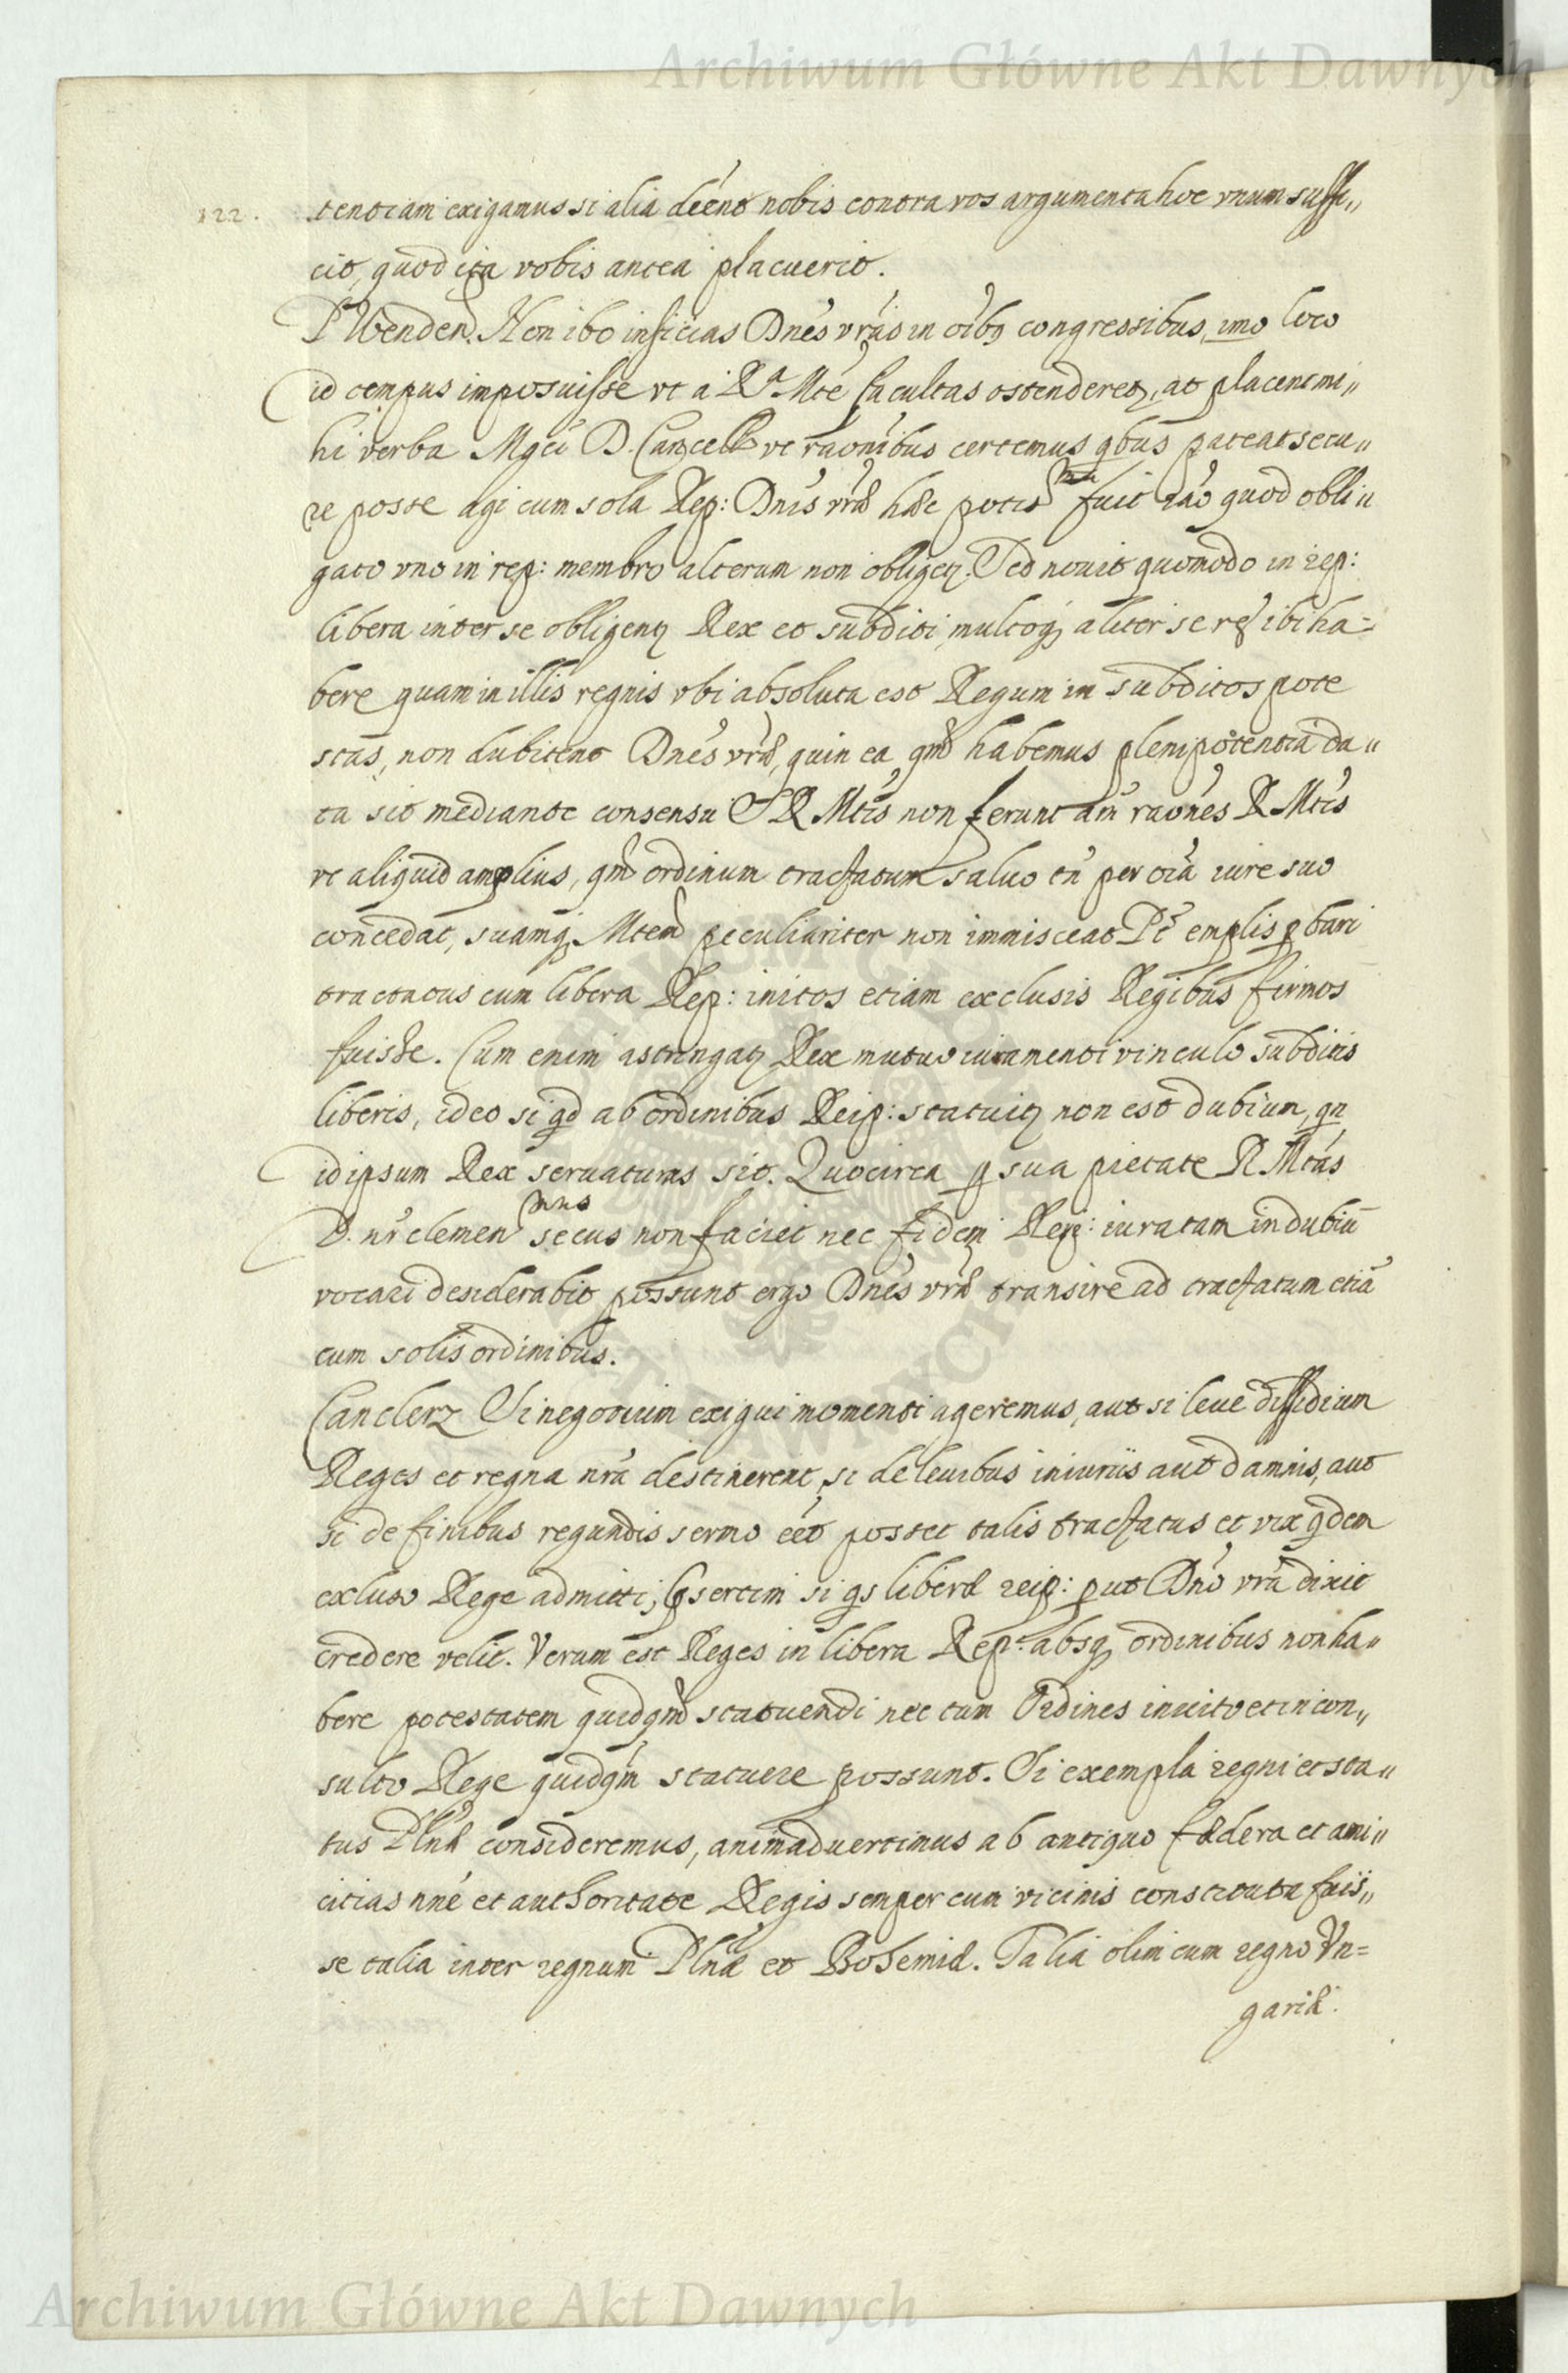 Archiwum Główne Akt Dawnych
122. tentiam exigamus si alia deént nobis contra vos argumenta hoc vnum suffi„
cit, quod ita vobis antea placuerit.
P Wenden. Non ibo inficias Dnes vras in oibs congressibus, imo loco
id tempus imposuisse vt a R.ª Mte facultas ostenderetz, at placent mi„
hi verba Mgci D. Cancell vt raonibus certemus qbus pateat secu„
re posse agi cum sola Rep: Dnis vræ hæc potis fuit rao quod obli„
gato vno in rep: membro alterum non obligetz. Sed nouit quomodo in rep:
libera inter se obligentz Rex et subditi, multoqz aliter se res ibi ha-
bere quam in illis regnis vbi absoluta est Regum in subditos pote
stas, non dubitent Dnes vræ, quin ea qm habemus plenipotentia da„
ta sit mediante consensu S R Mtis non ferunt am raones R Mtis
vt aliquid amplius, qm ordinum tractatum saluo tn per oia iure suo
concedat, suamqz Mtem peculiariter non immisceat Pt emplis pbari
tractatus cum libera Rep: initos etiam exclusis Regibus firmos
fuisse. Cum enim astringatz Rex mutuo iuramenti vinculo subditis
liberis, ideo si qd ab ordinibus Reip: statuitz non est dubium, qn
idipsum Rex seruaturus sit. Quocirca p sua pietate R Mtas
D. nr clemen mus secus non faciet nec fidem Reip: iuratam in dubiu
vocari desiderabit possunt ergo Dnes vræ transire ad tractatum etia
cum solis ordinibus.
Canclerz Si negotium exigui momenti ageremus, aut si leue dissidium
Reges et regna nra destinerent, si de leuibus iniuriis aut damnis, aut
si de finibus regundis sermo eét posset talis tractatus et vix qdem
excluso Rege admitti; psertim si qs liberæ reip: put Dno vra dixit
credere velit. Verum est Reges in libera Rep: absqz ordinibus non ha„
bere potestatem quidqm statuendi nec tam Ordines inuito et incon„
sulto Rege quidqm statuere possunt. Si exempla regni et sta„
tus Plnæ consideremus, animaduertimus ab antiquo fædera et ami„
citias nne et authoritate Regis semper cum vicinis constituta fuis„
se talia inter regnum Plnæ et Bohemiæ. Talia olim cum regno Vn=
gariæ.
Archiwum Główne Akt Dawnych